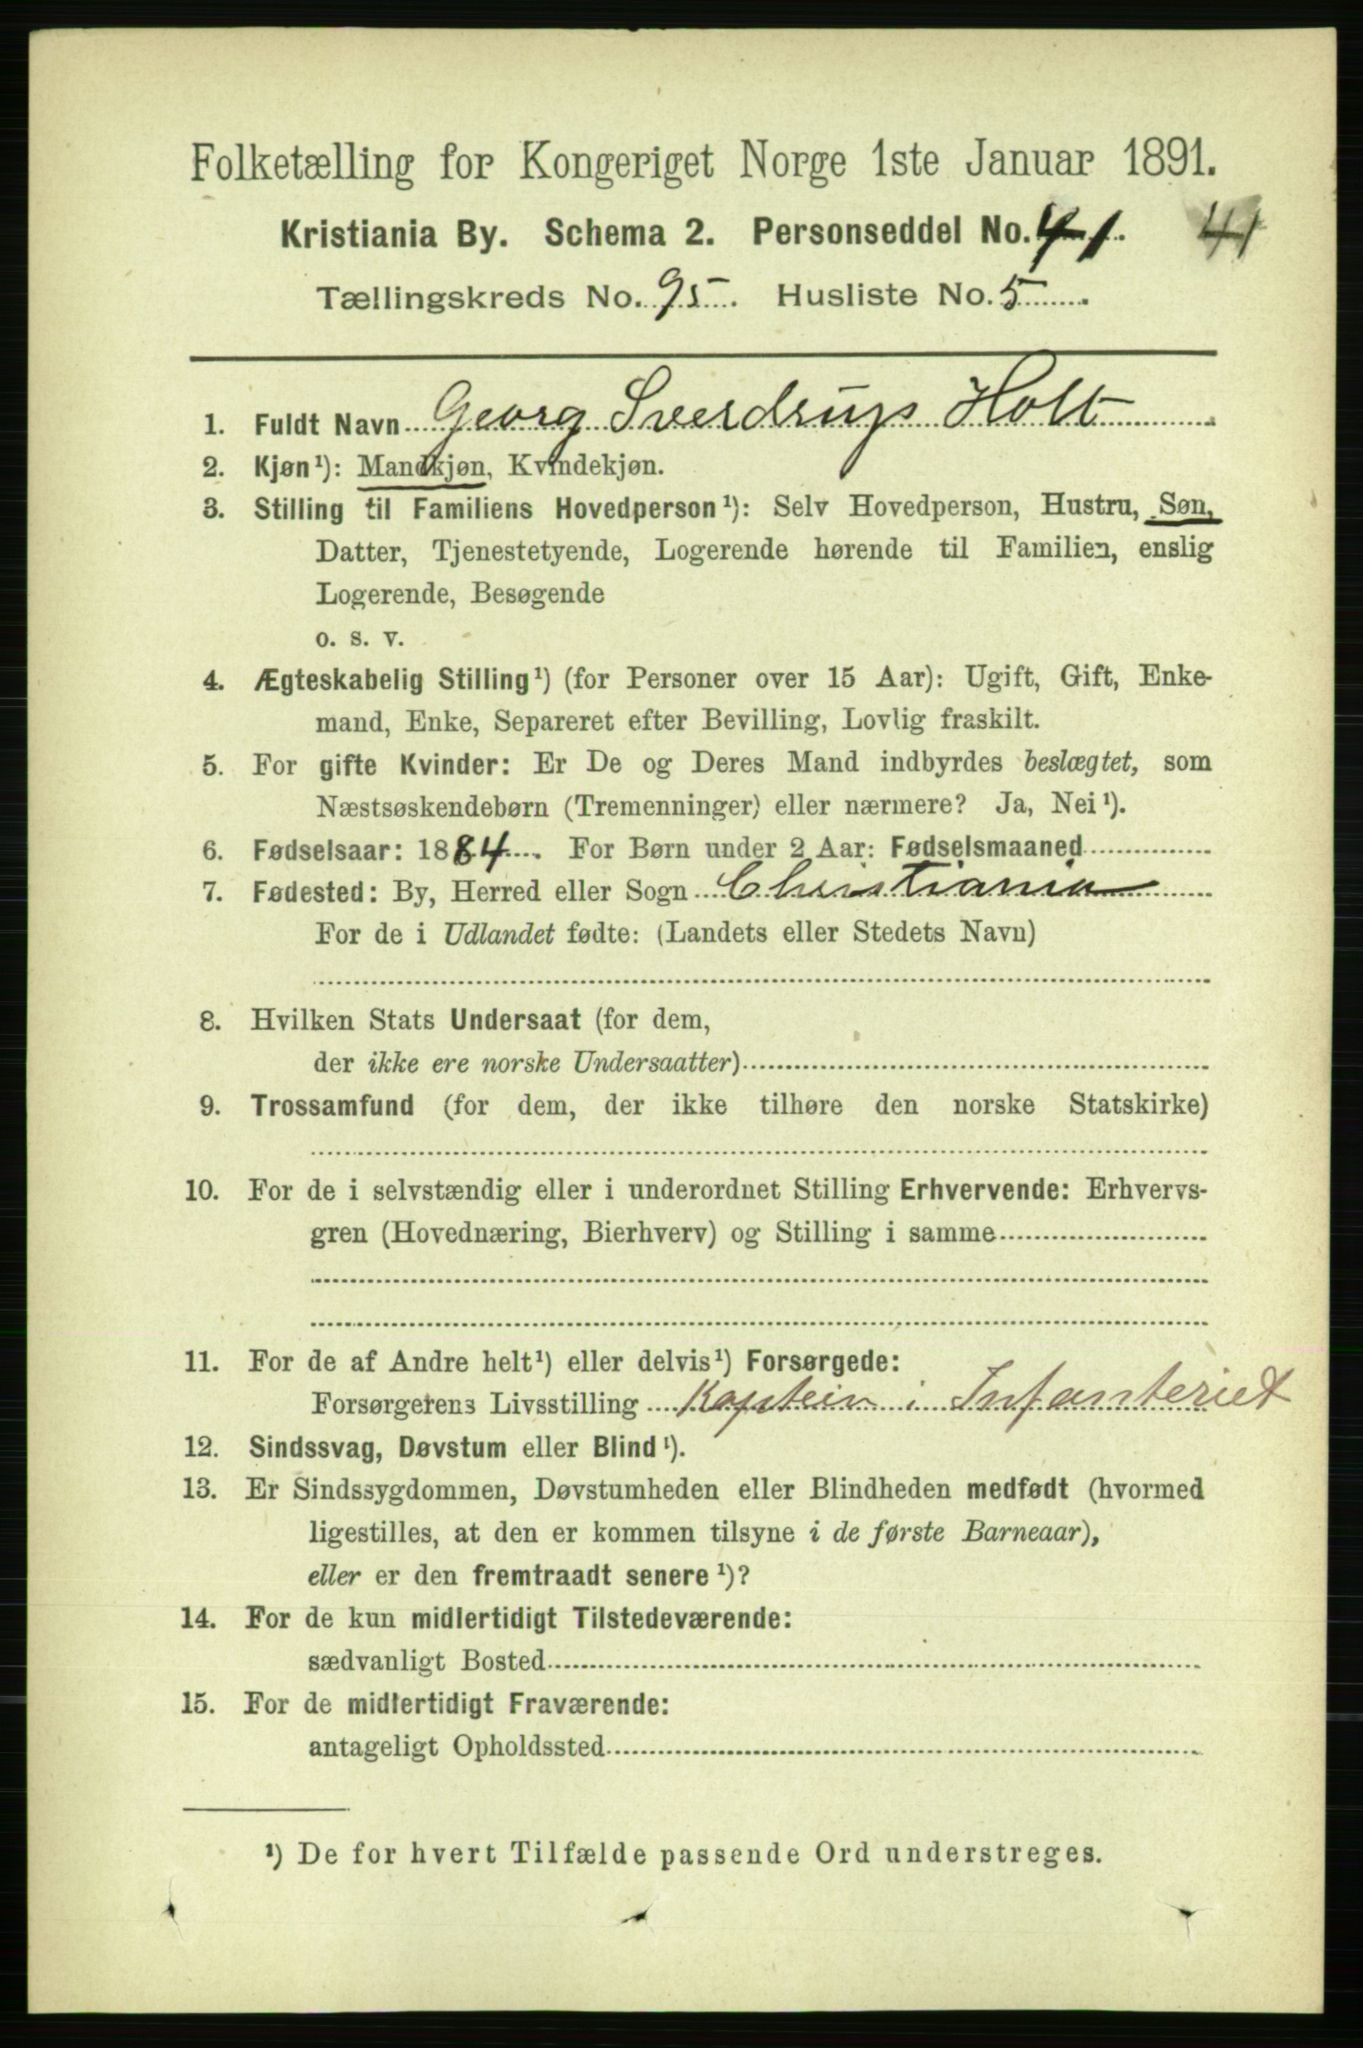 Folketælling for Kongeriget Norge 1ste Januar 1891.
Kristiania By. Schema 2. Personseddel No. 41. 41
Tællingskreds No. 95. Husliste No. 5.
1. Fuldt Navn Georg Sverdrup Holt
2. Kjøn¹): Mandkjøn, Kvindekjøn.
3. Stilling til Familiens Hovedperson¹): Selv Hovedperson, Hustru, Søn,
Datter, Tjenestetyende, Logerende hørende til Familien, enslig
Logerende, Besøgende
o. s. v.
4. Ægteskabelig Stilling¹) (for Personer over 15 Aar): Ugift, Gift, Enke-
mand, Enke, Separeret efter Bevilling, Lovlig fraskilt.
5. For gifte Kvinder: Er De og Deres Mand indbyrdes beslægtet, som
Næstsøskendebørn (Tremenninger) eller nærmere? Ja, Nei¹).
6. Fødselsaar: 1884. For Børn under 2 Aar: Fødselsmaaned
7. Fødested: By, Herred eller Sogn Christiania
For de i Udlandet fødte: (Landets eller Stedets Navn)
8. Hvilken Stats Undersaat (for dem,
der ikke ere norske Undersaatter)
9. Trossamfund (for dem, der ikke tilhøre den norske Statskirke)
10. For de i selvstændig eller i underordnet Stilling Erhvervende: Erhvervs-
gren (Hovednæring, Bierhverv) og Stilling i samme
11. For de af Andre helt¹) eller delvis¹) Forsørgede:
Forsørgerens Livsstilling Kaptein i Infanteriet
12. Sindssvag, Døvstum eller Blind¹).
13. Er Sindssygdommen, Døvstumheden eller Blindheden medfødt (hvormed
ligestilles, at den er kommen tilsyne i de første Barneaar),
eller er den fremtraadt senere¹)?
14. For de kun midlertidigt Tilstedeværende:
sædvanligt Bosted
15. For de midlertidigt Fraværende:
antageligt Opholdssted
¹) De for hvert Tilfælde passende Ord understreges.